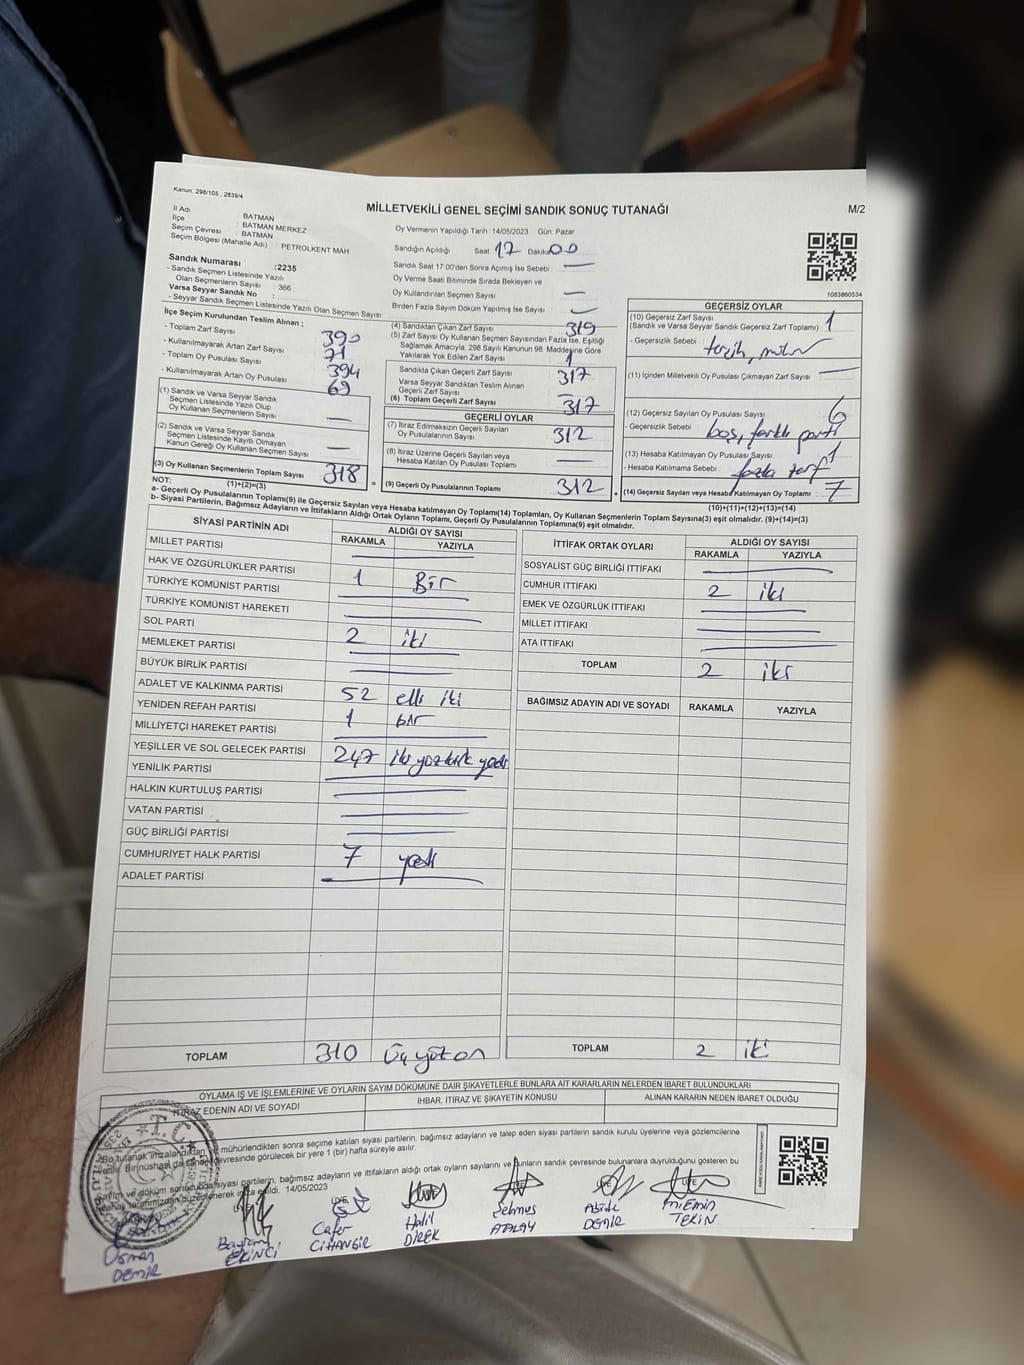 Kanun: 298/105 , 2839/4
MİLLETVEKİLİ GENEL SEÇİMİ SANDIK SONUÇ TUTANAĞI
M/2
İl Adı : BATMAN
İlçe : BATMAN MERKEZ
Seçim Çevresi : BATMAN
Seçim Bölgesi (Mahalle Adı) : PETROLKENT MAH
Sandık Numarası :2235
- Sandık Seçmen Listesinde Yazılı
Olan Seçmenlerin Sayısı : 366
Varsa Seyyar Sandık No :
- Seyyar Sandık Seçmen Listesinde Yazılı Olan Seçmen Sayısı:
Oy Vermenin Yapıldığı Tarih :14/05/2023 Gün: Pazar
Sandığın Açıldığı Saat 17 Dakika 00
Sandık Saat 17.00'den Sonra Açılmış İse Sebebi : —
Oy Verme Saati Bitiminde Sırada Bekleyen ve
Oy Kullandırılan Seçmen Sayısı : —
Birden Fazla Sayım Döküm Yapılmış İse Sayısı : —
1083860534
İlçe Seçim Kurulundan Teslim Alınan ;
- Toplam Zarf Sayısı 390
- Kullanılmayarak Artan Zarf Sayısı 71
- Toplam Oy Pusulası Sayısı 394
- Kullanılmayarak Artan Oy Pusulası 69
(1) Sandık ve Varsa Seyyar Sandık
Seçmen Listesinde Yazılı Olup
Oy Kullanan Seçmenlerin Sayısı —
(2) Sandık ve Varsa Seyyar Sandık
Seçmen Listesinde Kayıtlı Olmayan
Kanun Gereği Oy Kullanan Seçmen Sayısı —
(3) Oy Kullanan Seçmenlerin Toplam Sayısı 318
(1)+(2)=(3)
(4) Sandıktan Çıkan Zarf Sayısı 319
(5) Zarf Sayısı Oy Kullanan Seçmen Sayısından Fazla İse, Eşitliği
Sağlamak Amacıyla, 298 Sayılı Kanunun 98. Maddesine Göre
Yakılarak Yok Edilen Zarf Sayısı 1
Sandıkta Çıkan Geçerli Zarf Sayısı 317
Varsa Seyyar Sandıktan Teslim Alınan
Geçerli Zarf Sayısı —
(6) Toplam Geçerli Zarf Sayısı 317
GEÇERLİ OYLAR
(7) İtiraz Edilmeksizin Geçerli Sayılan
Oy Pusulalarının Sayısı 312
(8) İtiraz Üzerine Geçerli Sayılan veya
Hesaba Katılan Oy Pusulası Toplamı —
= (9) Geçerli Oy Pusulalarının Toplamı 312 +
GEÇERSİZ OYLAR
(10) Geçersiz Zarf Sayısı
(Sandık ve Varsa Seyyar Sandık Geçersiz Zarf Toplamı) : 1
- Geçersizlik Sebebi : tercih,
(11) İçinden Milletvekili Oy Pusulası Çıkmayan Zarf Sayısı : —
(12) Geçersiz Sayılan Oy Pusulası Sayısı : 6
- Geçersizlik Sebebi : boş, farklı parti
(13) Hesaba Katılmayan Oy Pusulası Sayısı : 1
- Hesaba Katılmama Sebebi : fazla zarf
(14) Geçersiz Sayılan veya Hesaba Katılmayan Oy Toplamı 7
(10)+(11)+(12)+(13)=(14)
NOT:
a- Geçerli Oy Pusulalarının Toplamı(9) ile Geçersiz Sayılan veya Hesaba katılmayan Oy Toplamı(14) Toplamları, Oy Kullanan Seçmenlerin Toplam Sayısına(3) eşit olmalıdır. (9)+(14)=(3)
b- Siyasi Partilerin, Bağımsız Adayların ve İttifakların Aldığı Ortak Oyların Toplamı, Geçerli Oy Pusulalarının Toplamına(9) eşit olmalıdır.
SİYASİ PARTİNİN ADI ALDIĞI OY SAYISI
RAKAMLA YAZIYLA
MİLLET PARTİSİ —
HAK VE ÖZGÜRLÜKLER PARTİSİ 1 Bir
TÜRKİYE KOMÜNİST PARTİSİ —
TÜRKİYE KOMÜNİST HAREKETİ —
SOL PARTİ 2 iki
MEMLEKET PARTİSİ —
BÜYÜK BİRLİK PARTİSİ —
ADALET VE KALKINMA PARTİSİ 52 elli iki
YENİDEN REFAH PARTİSİ 1 bir
MİLLİYETÇİ HAREKET PARTİSİ —
YEŞİLLER VE SOL GELECEK PARTİSİ 247 ikiyüzkırk yedi
YENİLİK PARTİSİ —
HALKIN KURTULUŞ PARTİSİ —
VATAN PARTİSİ —
GÜÇ BİRLİĞİ PARTİSİ —
CUMHURİYET HALK PARTİSİ 7 yedi
ADALET PARTİSİ —
TOPLAM 310 Üçyüzon
İTTİFAK ORTAK OYLARI ALDIĞI OY SAYISI
RAKAMLA YAZIYLA
SOSYALİST GÜÇ BİRLİĞİ İTTİFAKI —
CUMHUR İTTİFAKI 2 iki
EMEK VE ÖZGÜRLÜK İTTİFAKI —
MİLLET İTTİFAKI —
ATA İTTİFAKI —
TOPLAM 2 iki
BAĞIMSIZ ADAYIN ADI VE SOYADI RAKAMLA YAZIYLA
TOPLAM 2 iki
OYLAMA İŞ VE İŞLEMLERİNE VE OYLARIN SAYIM DÖKÜMÜNE DAİR ŞİKAYETLERLE BUNLARA AİT KARARLARIN NELERDEN İBARET BULUNDUKLARI
İTİRAZ EDENİN ADI VE SOYADI İHBAR, İTİRAZ VE ŞİKAYETİN KONUSU ALINAN KARARIN NEDEN İBARET OLDUĞU
Bu tutanak imzalandıktan mühürlendikten sonra seçime katılan siyasi partilerin, bağımsız adayların ve talep eden siyasi partilerin sandık kurulu üyelerine veya gözlemcilerine
Bir nüshası da sandık çevresinde görülecek bir yere 1 (bir) hafta süreyle asılır.
Sayım ve döküm sonucunda siyasi partilerin, bağımsız adayların ve ittifakların aldığı ortak oyların sayılarını ve bunların sandık çevresinde bulunanlara duyrulduğunu gösteren bu
tutanak tarafımızca düzenlenerek imza edildi. 14/05/2023
T.C.
Osman DEMİR
Bayram EKİNCİ
Cafer CİHANGİR
Halil DİREK
Şehmus ATALAY
Abide DEMİR
M.Emin TEKİN